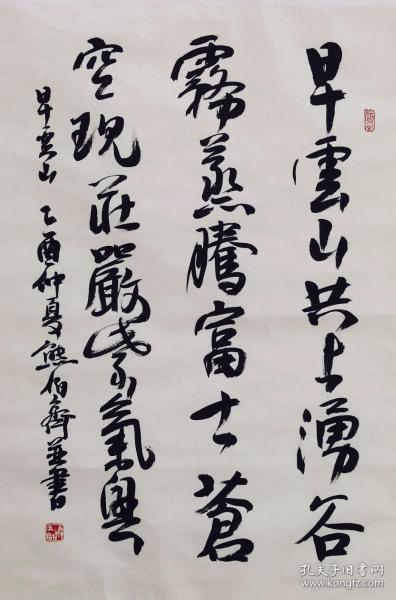 早雲山共上湧谷
霧蒸騰富士蒼
空現莊嚴紫氣與
早雲山 乙酉仲夏熊伯齊並書
孔夫子旧书网
www.kongfz.com